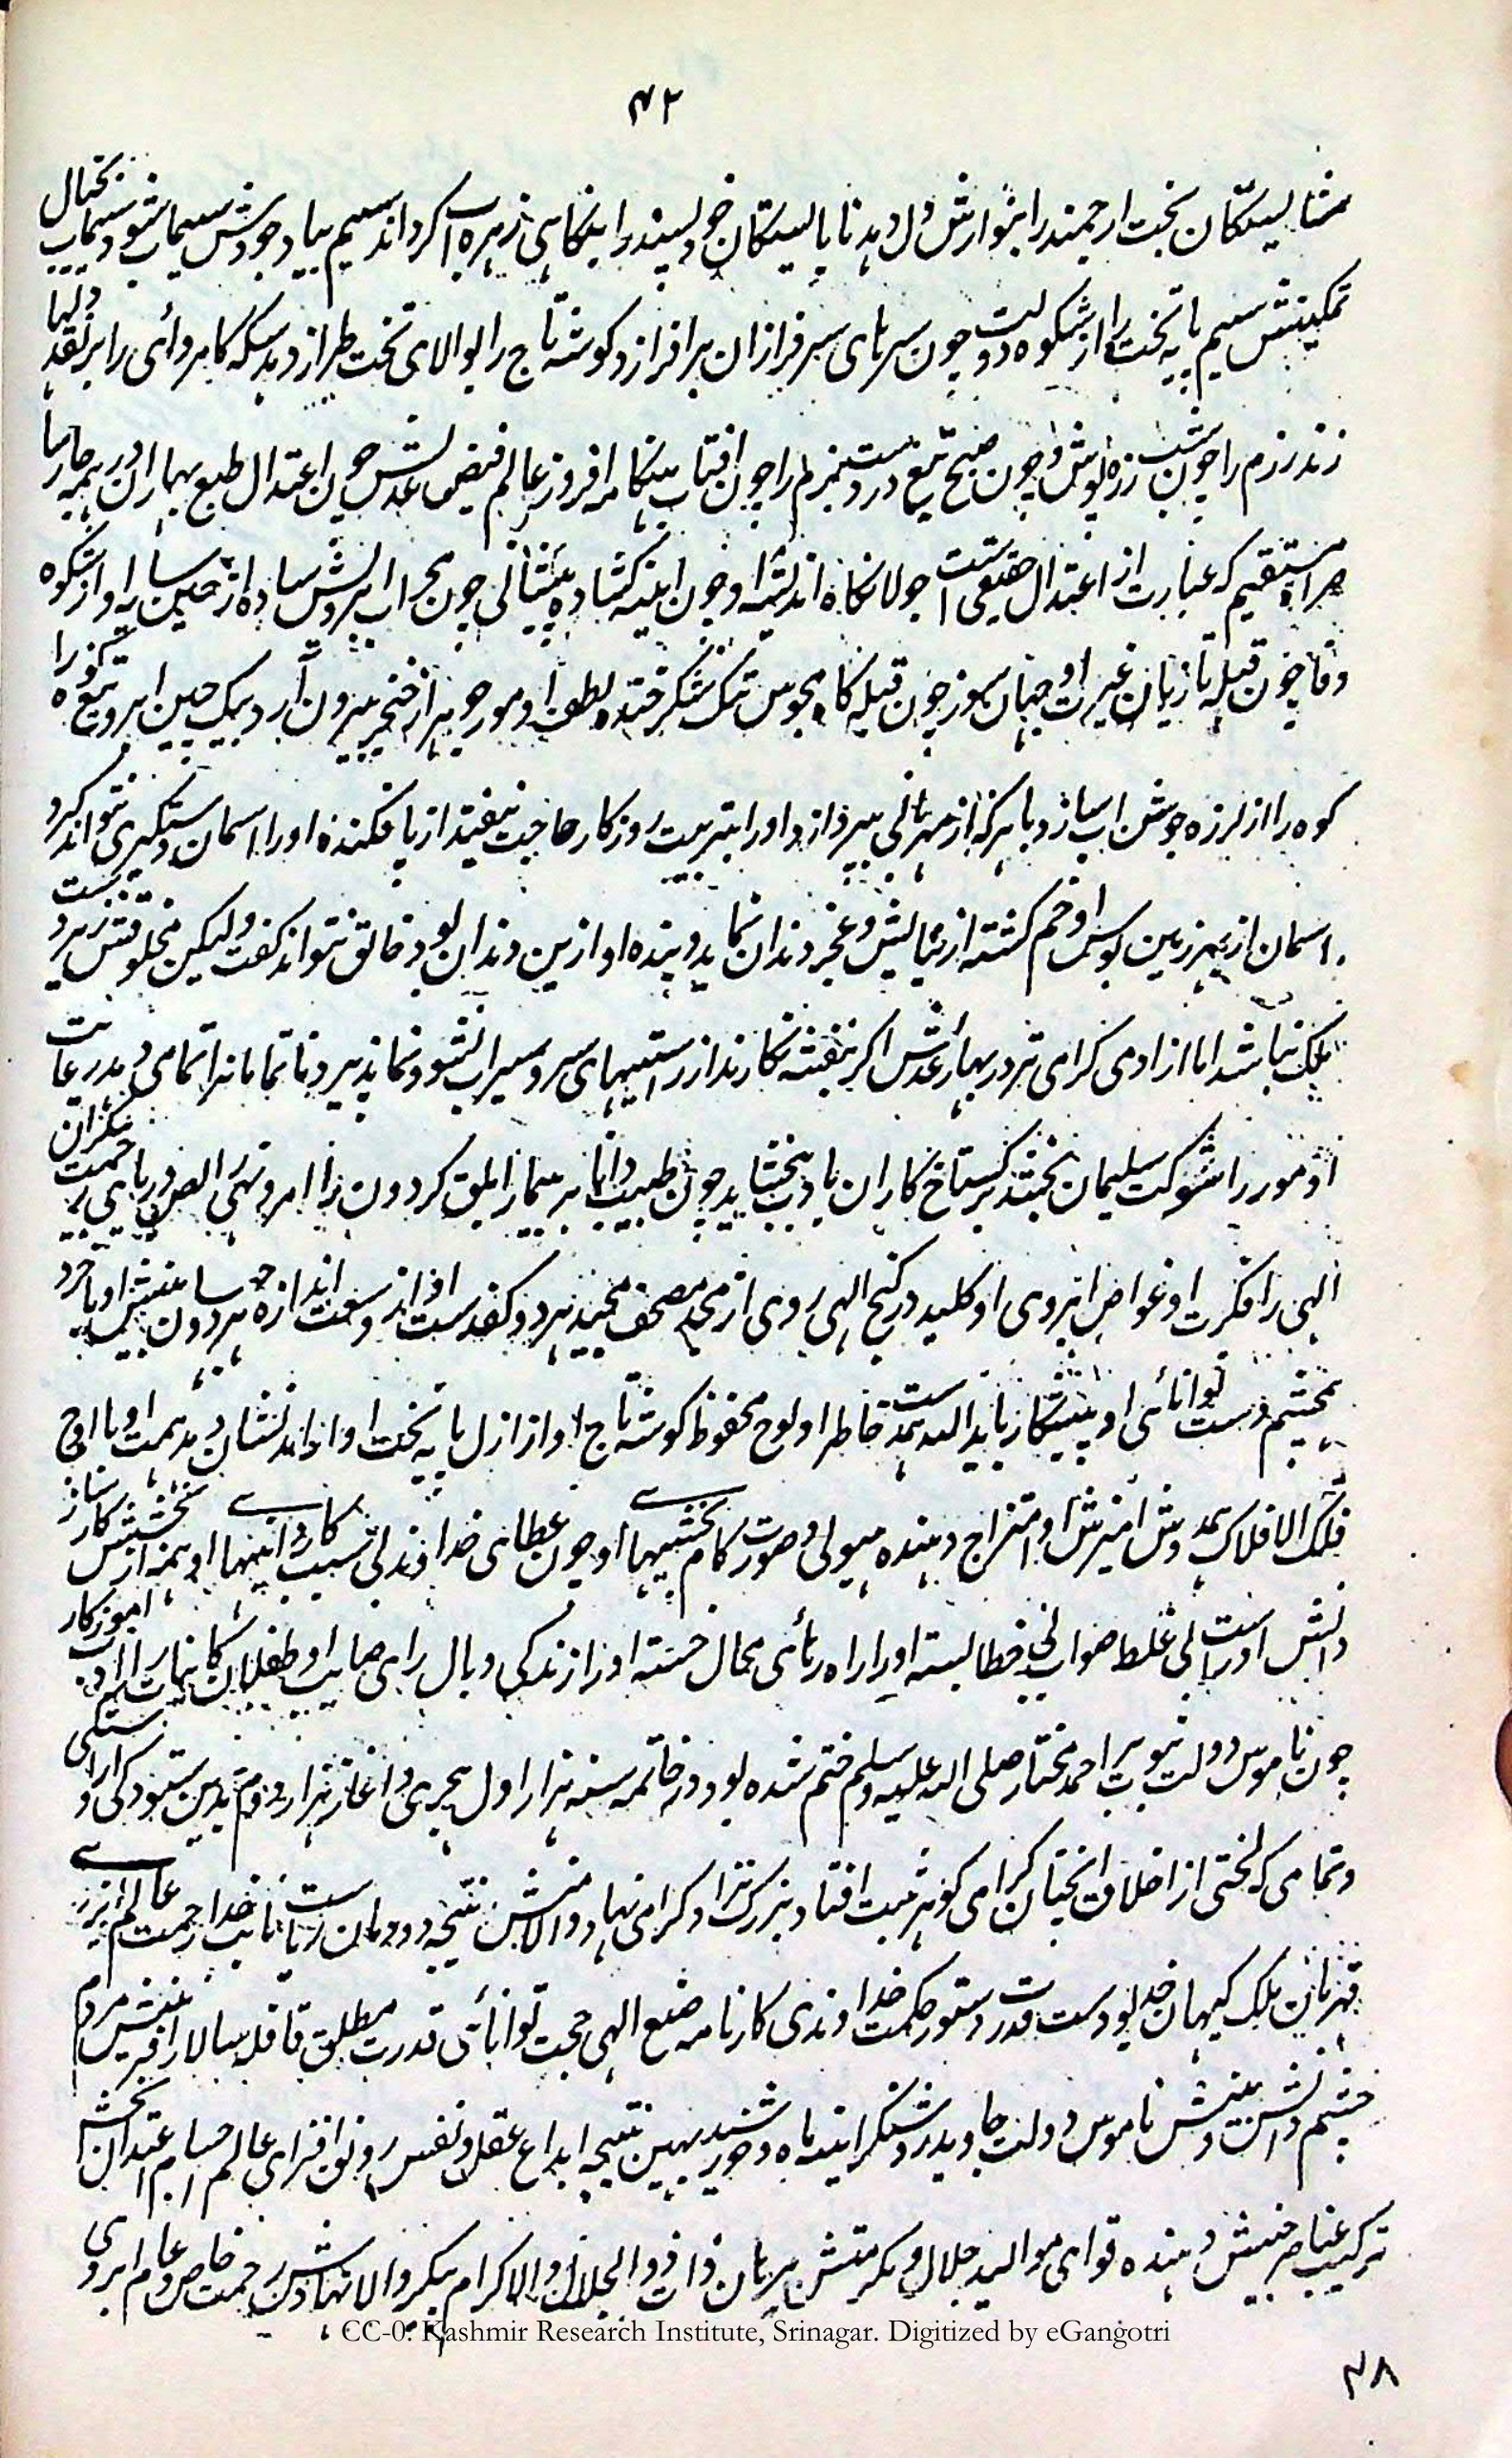 ۴۲
شایستگان بخت ارجمند را بنوازش دل دهد ناپایستگان خود پسند را بنگاهی زهره آب کرداند سیم بیاد جودش سیماب شود و سیماب بخیال
تمکینش سیم پایه تخت را از شکوه دولت چون سرهای سرفرازان برافرازد کوشه تاج را بوالای تخت طرازد سکه کامروائی را بر نقد دلها
زند رزم را چون شب زره پوش و چون صبح تیغ در دست بزم را چون افتاب هنکامه افروز عالم فیض عدلش چون اعتدال طبع بهاران بر همه جا رسا
صراط مستقیم که عبارت از اعتدال حقیقی است جولانکاه اندیشه او چون اینه کشاده پیشانی چون محراب ابرویش ساده از چین سایه او از شکوه
وفا چون قبله تازیان غیرت او جهان سوز چون قبله کاه مجوس تنک شکر خنده لطف او مور جوهر از خنجر بیرون آرد بیک چین ابرو تیغ کوه را
کوه را از لرزه جوشن اب سازد با هرکه از مهربانی بپردازد او را بتربیت روزکار حاجت نیفتد از پا فکنده او را اسمان دستکیری نتواند کرد
اسمان از بهر زمین بوس او خم کشته از نیایش و عجز دندان نماید و بنده او ازین دندان بود خالق نتواند کفت ولیکن مخلوقش نبرد
ملک نباشد اما از ادمی کرامی تر در بهار عدلش اکر بنفشه نکارند از راستیهای سرو سیراب نشو و نما پذیرد ناتمامانرا تمامی دهد رعایت
او مور را شوکت سلیمان بخشد بر کستاخ کاران بادب بخشاید چون طبیب دانا بر بیمار ابلق کردون را امر و نهی رحمت بیکران
الهی را فکرت او غواص ابروی او کلید در کنج الهی روی از مجد مصحف مجید هر دو کفدست از وسعت اندازه هر دو بینش او با خرد
همچشم دست توانائی او پیشکار ید الله همدست خاطر او لوح محفوظ کوشه تاج او از ازل پایه تخت او از ابد نشان دهد همت او با اوج
فلک الافلاک همدوش امیزش او امتزاج دهنده هیولی و صورت کام بخشیها او چون عطای خداوندی بی سبب کاردانیها او همه از بخشش کارساز
دانش او راست بی غلط صوابی خطا بسته او را راه رهائی محال خسته او را زندکی وبال رای صایب او طفلان را ادب اموزکار
چون ناموس دولت نبوت بر احمد مختار صلی الله علیه وسلم ختم شده بود در خاتمه سنه هزار اول هجری و اغاز هزار دوم بدین ستودکی و اراستکی
و تمامی که لختی از اخلاق انجنان کرامی کوهر ثبت افتاد بزرک نژاد کرامی نهاد والا منش نتیجه دودمان نایب خدا رحمت عالم
قهرمان ملک کیهان خدیو دست قدرت دستور حکمت خداوندی کارنامه صنع الهی حجت توانائی قدرت مطلق قافله سالار افرینش مردم
چشم دانش و بینش ناموس دولت جاوید روشنکر اینه ماه و خورشید بهین نتیجه ابداع عقل و نفس رونق افزای عالم اجسام اعتدال بخش
ترکیب عناصر جنبش دهنده قوای موالید جلال و مکرمتش برهان ذات ذو الجلال والاکرام پیکر والا نهادش رحمت خاص و عام ابروی
CC-0. Kashmir Research Institute, Srinagar. Digitized by eGangotri
۴۸